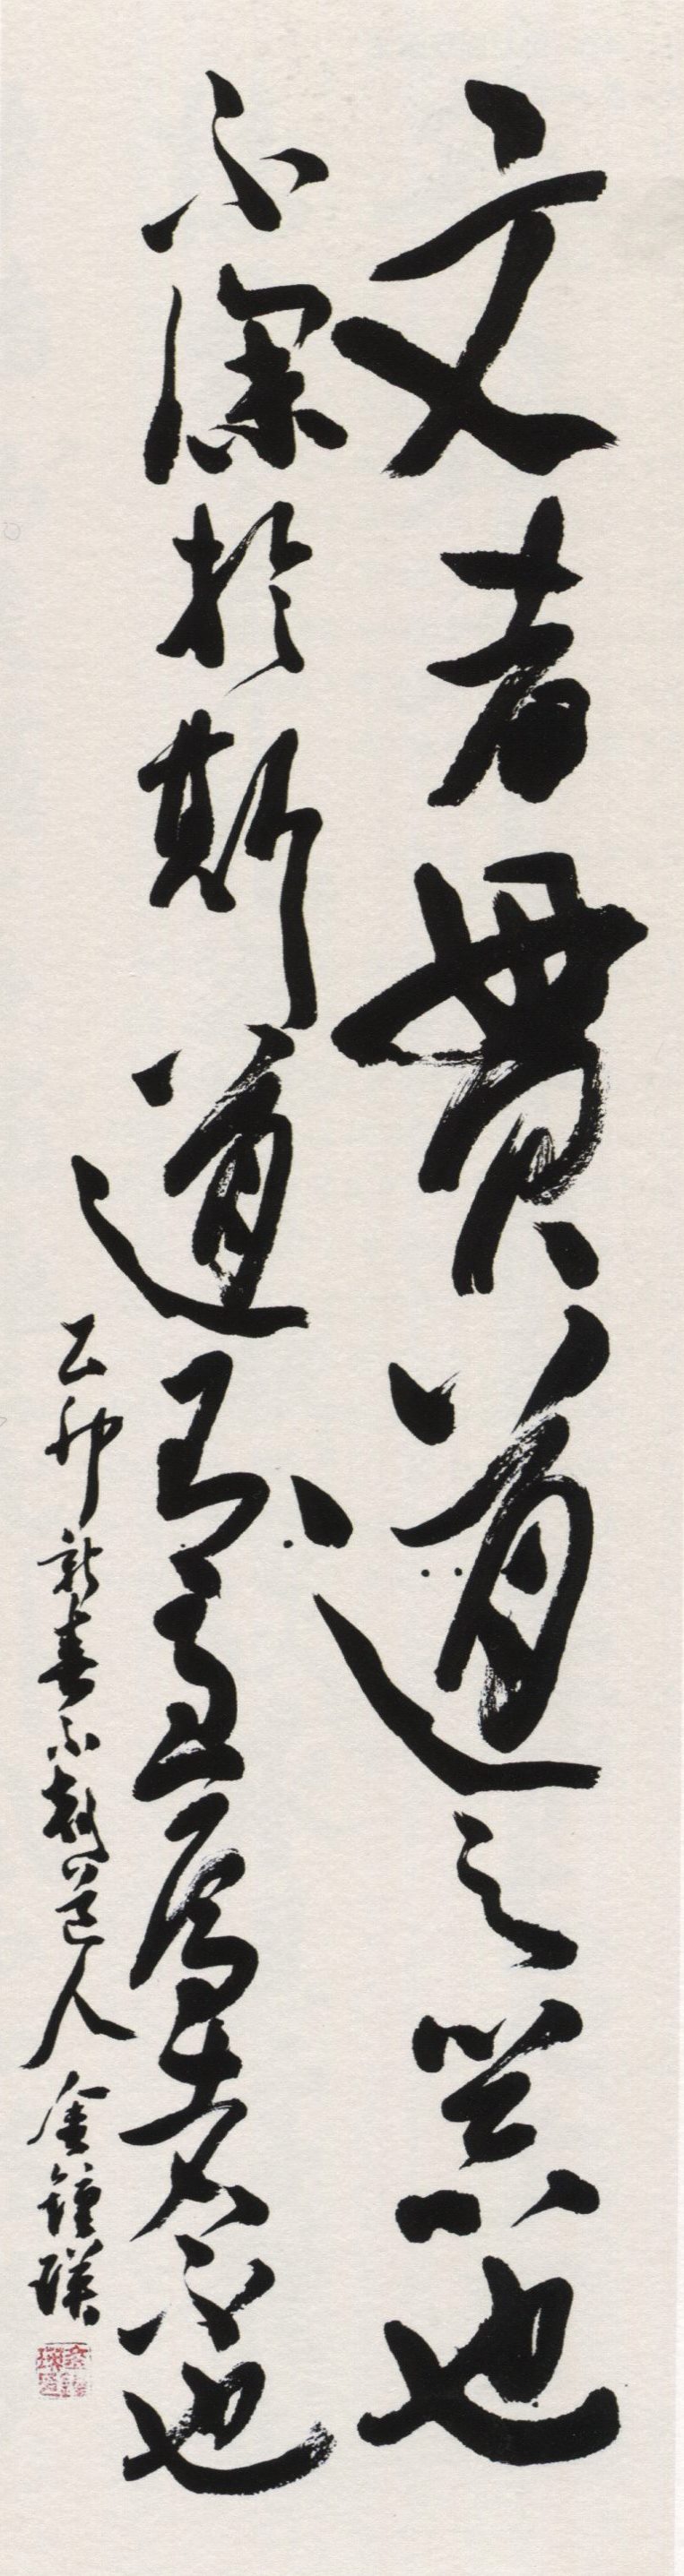 文者貫道之器也
不深於斯道有至焉者不也
乙卯新春不刻道人 金鍾瑛